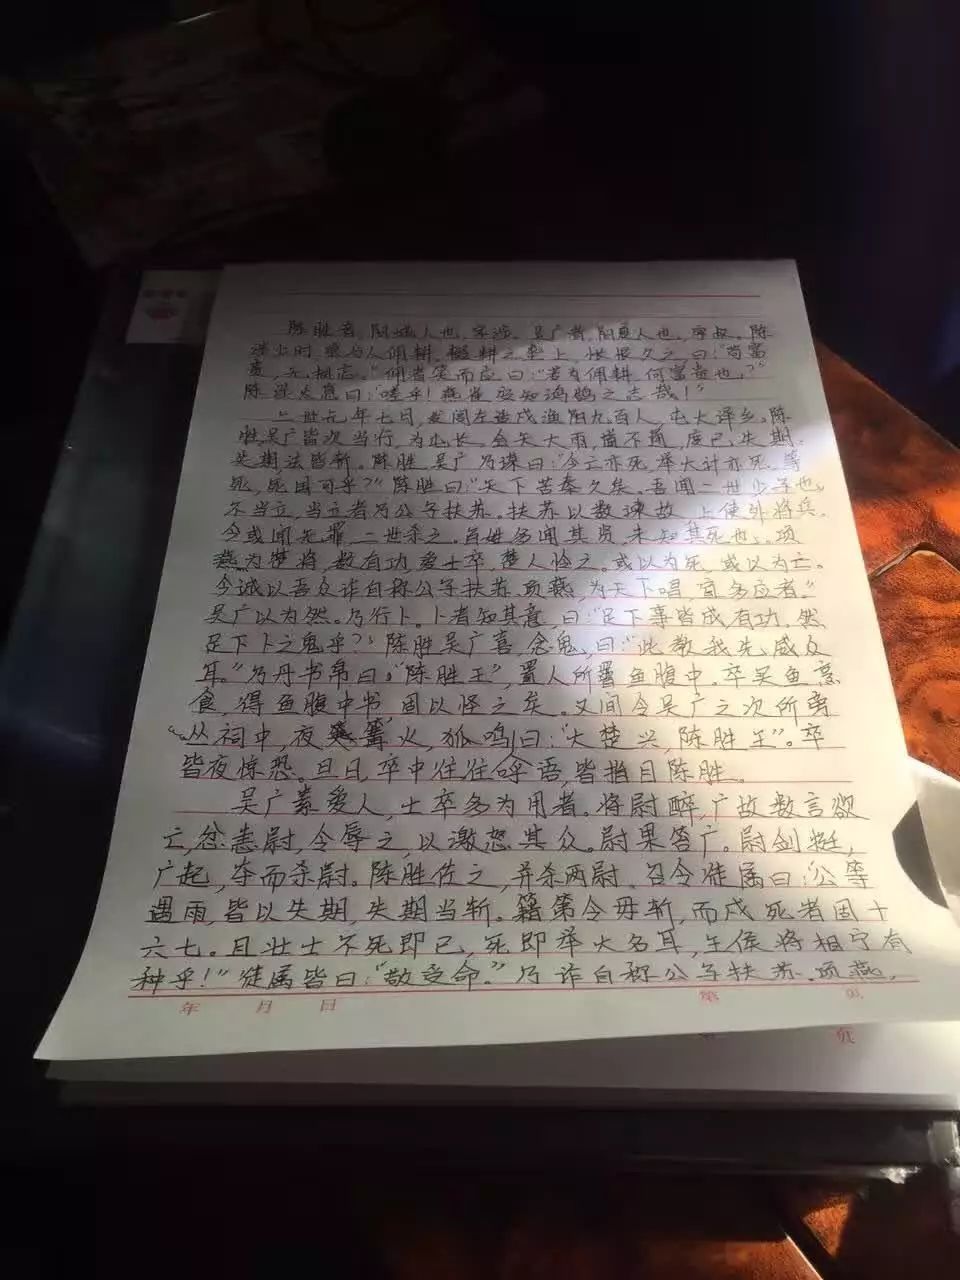 陈胜者，阳城人也，字涉。吴广者，阳夏人也，字叔。陈
涉少时，尝与人佣耕，辍耕之垄上，怅恨久之，曰：“苟富
贵，无相忘。”佣者笑而应曰：“若为佣耕，何富贵也？”
陈涉太息曰：“嗟乎！燕雀安知鸿鹄之志哉！”
二世元年七月，发闾左适戍渔阳九百人，屯大泽乡。陈
胜、吴广皆次当行，为屯长。会天大雨，道不通，度已失期。
失期，法皆斩。陈胜、吴广乃谋曰：“今亡亦死，举大计亦死，等
死，死国可乎？”陈胜曰：“天下苦秦久矣。吾闻二世少子也，
不当立，当立者乃公子扶苏。扶苏以数谏故，上使外将兵。
今或闻无罪，二世杀之。百姓多闻其贤，未知其死也。项
燕为楚将，数有功，爱士卒，楚人怜之。或以为死，或以为亡。
今诚以吾众诈自称公子扶苏、项燕，为天下唱，宜多应者。”
吴广以为然。乃行卜。卜者知其意，曰：“足下事皆成，有功。然
足下卜之鬼乎？”陈胜吴广喜，念鬼，曰：“此教我先威众
耳。”乃丹书帛曰：“陈胜王”，置人所罾鱼腹中。卒买鱼烹
食，得鱼腹中书，固以怪之矣。又间令吴广之次所旁
丛祠中，夜篝火，狐鸣曰：“大楚兴，陈胜王”。卒
皆夜惊恐。旦日，卒中往往呼语，皆指目陈胜。
吴广素爱人，士卒多为用者。将尉醉，广故数言欲
亡，忿恚尉，令辱之，以激怒其众。尉果笞广。尉剑挺，
广起，夺而杀尉。陈胜佐之，并杀两尉。召令徒属曰：“公等
遇雨，皆以失期，失期当斩。籍第令毋斩，而戍死者固十
六七。且壮士不死即已，死即举大名耳，王侯将相宁有
种乎！”徒属皆曰：“敬受命。”乃诈自称公子扶苏、项燕，
年 月 日 第 页
页